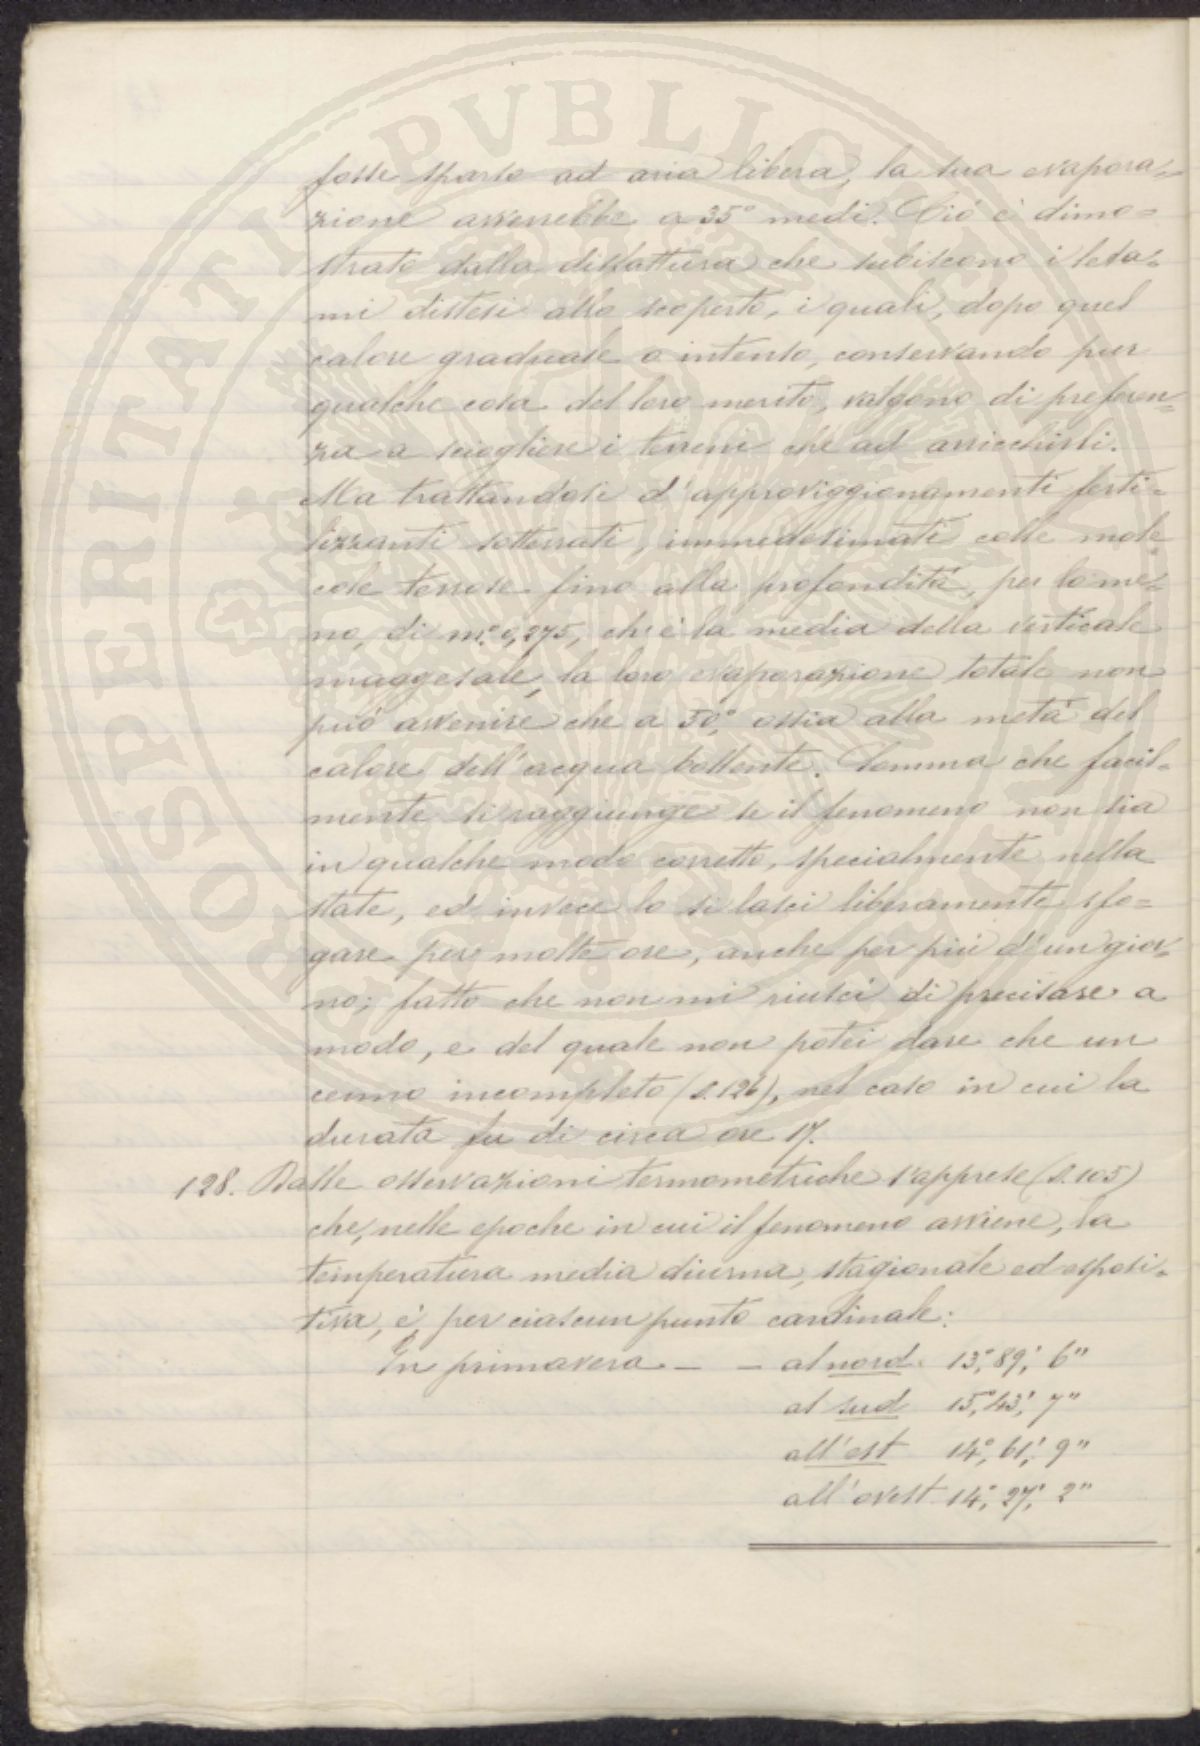 PROSPERITATI PVBLICAE
fosse sparso ad aria libera, la sua evapora=
zione avverrebbe a 35° medi. Ciò è dimo=
strato dalla disfattura che subiscono i leta=
mi distesi allo scoperto, i quali, dopo quel
calore graduale o intenso, conservando pur
qualche cosa del loro merito, valgono di preferen=
za a sciogliere i terreni che ad arricchirli.
Ma trattandosi d'approviggionamenti ferti=
lizzanti sotterrati, immedesimati colle mole
cole terrose fino alla profondità, per lo me=
no, di m.° 0,275, ch'è la media della verticale
maggesale, la loro evaporazione totale non
può avvenire che a 50°, ossia alla metà del
calore dell'acqua bollente. Somma che facil=
mente si raggiunge se il fenomeno non sia
in qualche modo corretto, specialmente nella
state, ed invece lo si lasci liberamente sfo=
gare per molte ore, anche per più d'un gior=
no; fatto che non mi riuscì di precisare a
modo, e del quale non potei dare che un
cenno incompleto (§.126), nel caso in cui la
durata fu di circa ore 17.
128. Dalle osservazioni termometriche s'apprese (§.105)
che, nelle epoche in cui il fenomeno avviene, la
temperatura media diurna, stagionale ed esposi=
tiva, è, per ciascun punto cardinale:
In primavera — — al nord 13°, 89', 6"
al sud 15°, 43', 7"
all'est 14°, 61', 9"
all'ovest 14°, 27', 2"